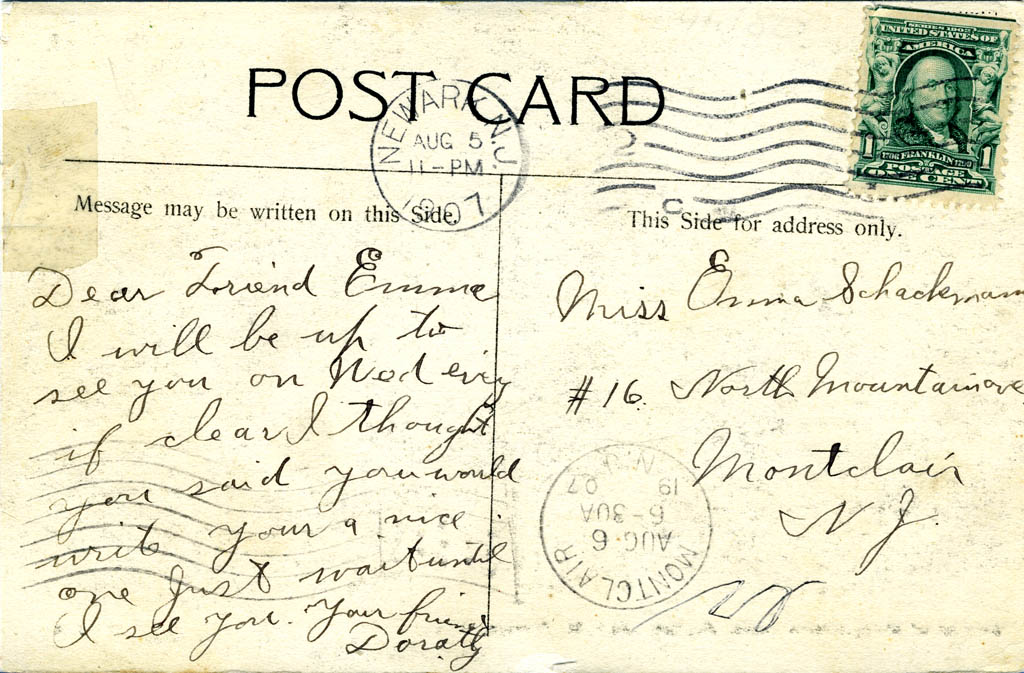 POST CARD
NEWARK, N.J.
AUG 5
11-PM
1907
SERIES 1902
UNITED STATES OF
AMERICA
1706 FRANKLIN 1790
1 1
POSTAGE
ONE CENT
Message may be written on this Side.
This Side for address only.
Dear Friend Emma
I will be up to
see you on Wed
if clear I thought
you said you would
write your a nice
one Just wait until
I see you. Your friend
Doratly
Miss Emma Schackman
#16 North Mountain ave
Montclair
N J.
MONTCLAIR
AUG 6
6-30A
1907
N.J.